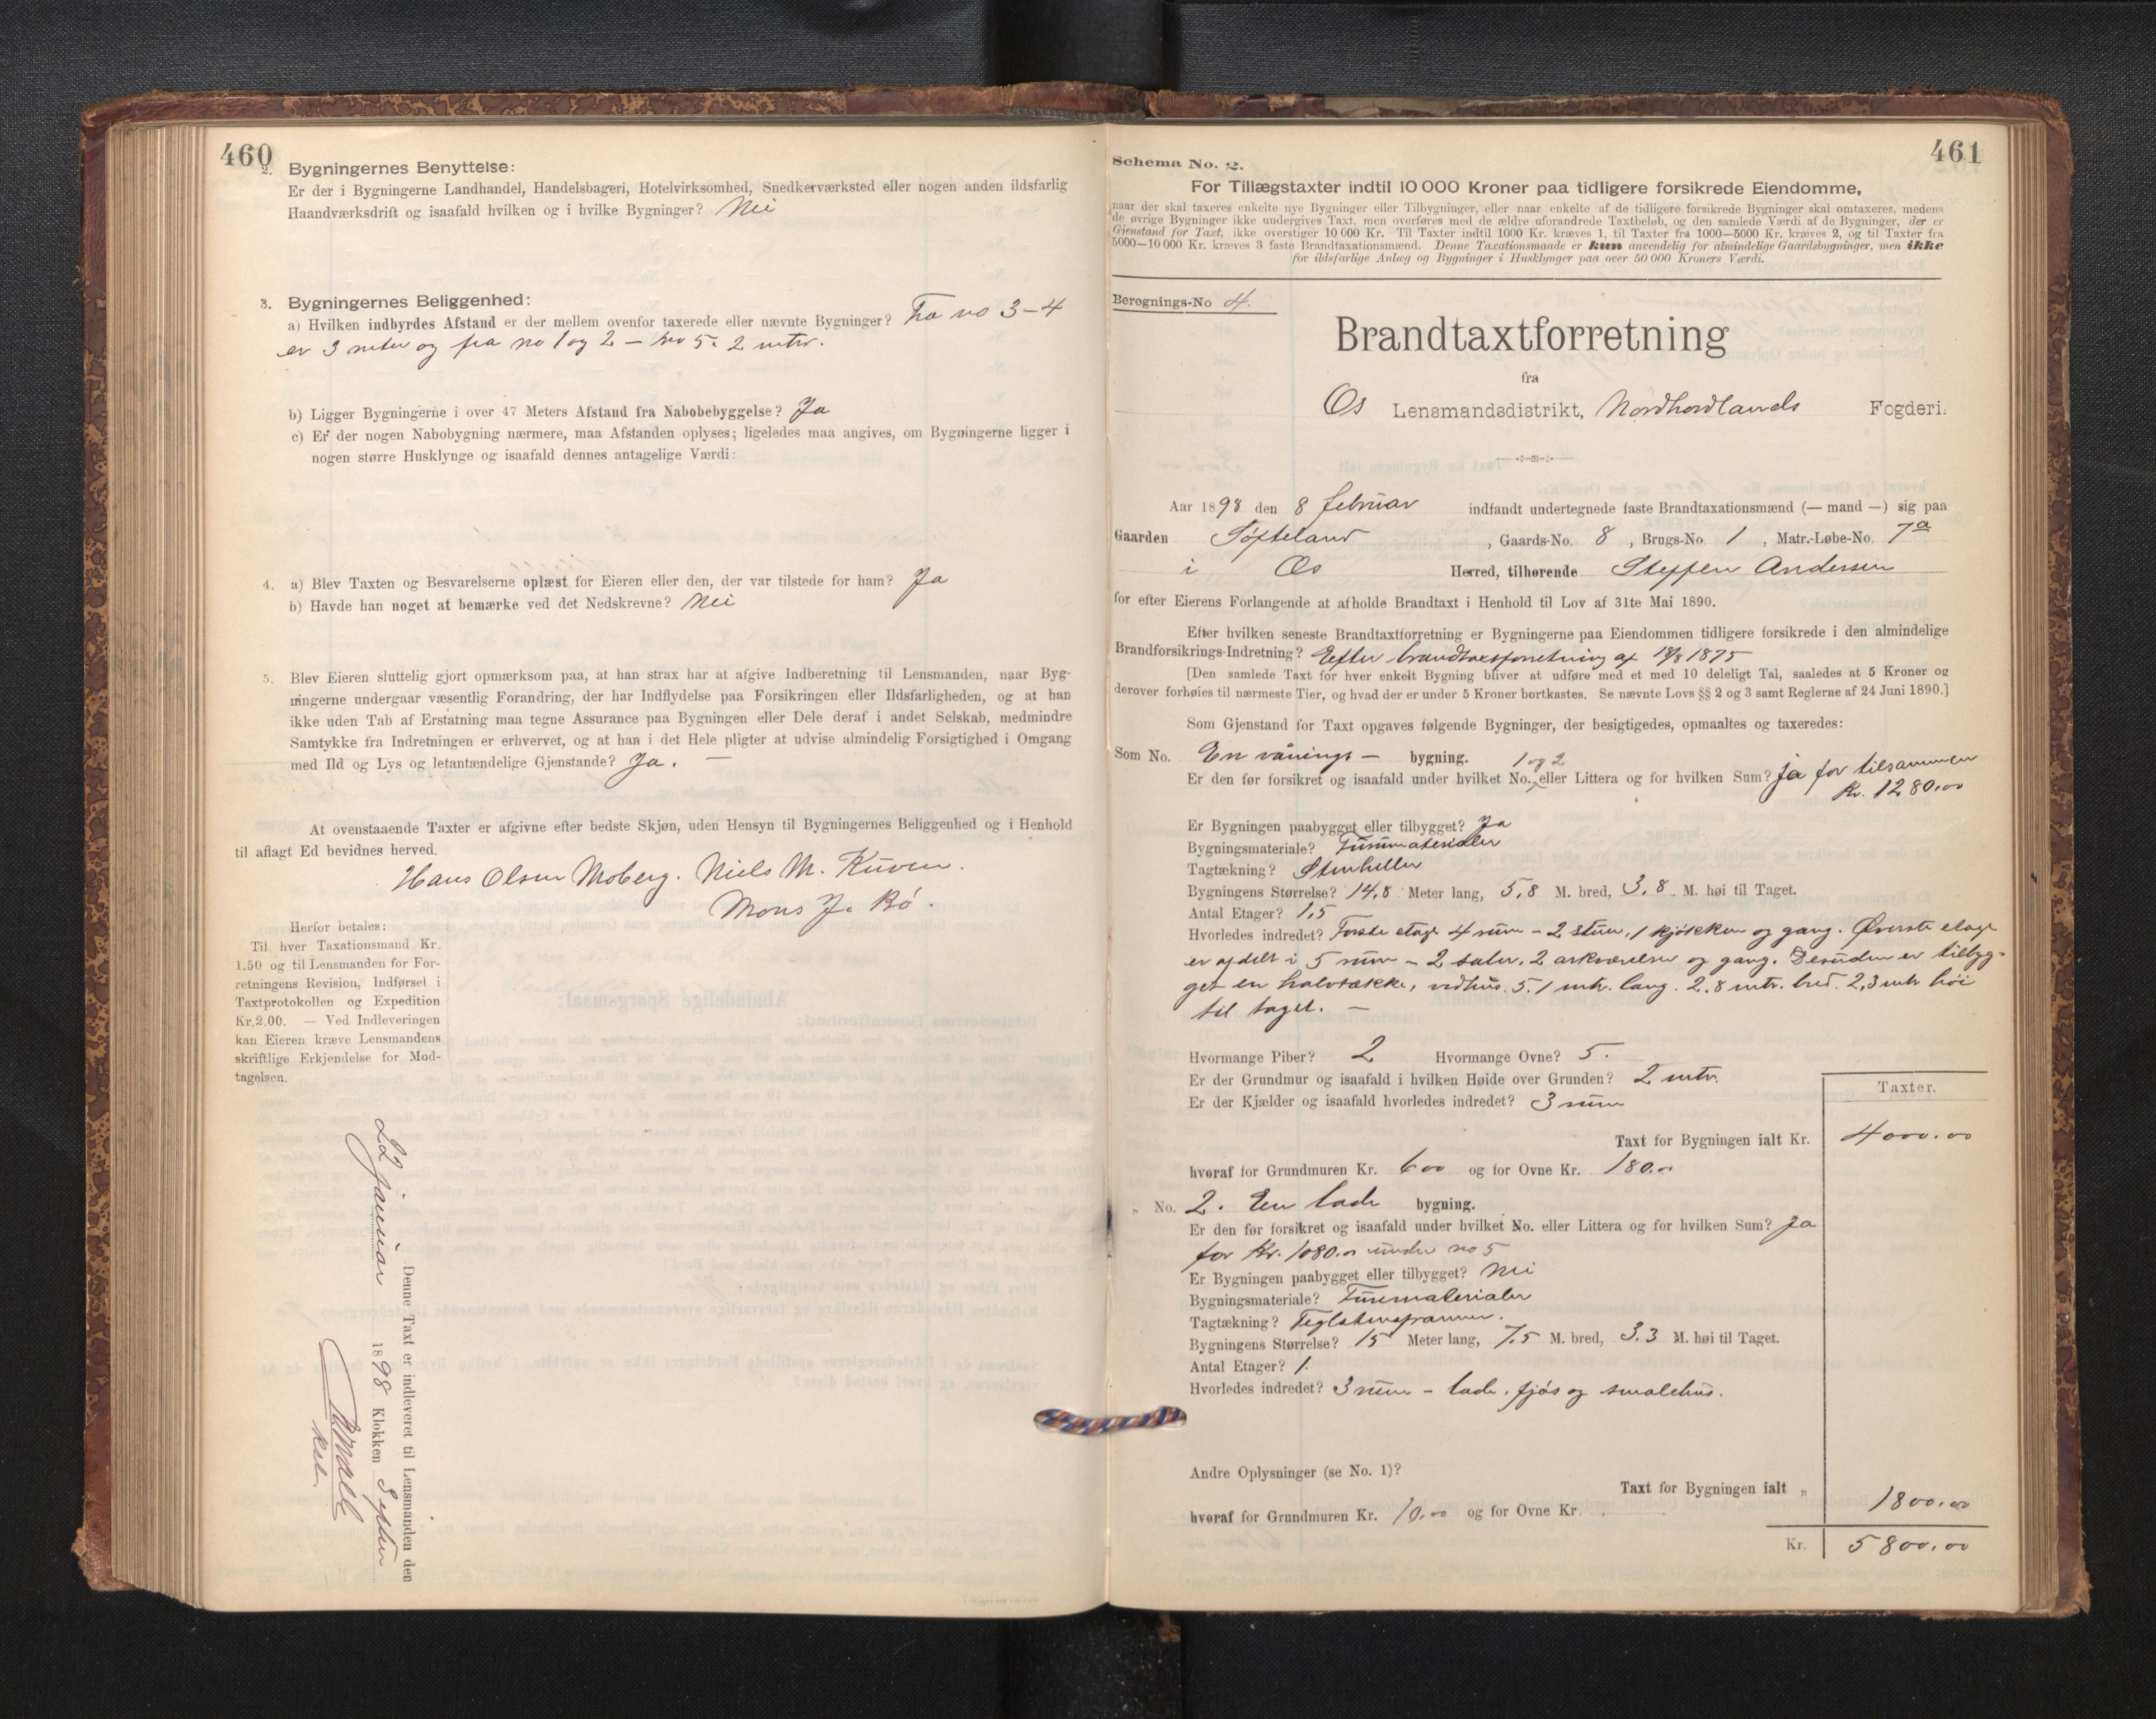 460
2. Bygningernes Benyttelse:
Er der i Bygningerne Landhandel, Handelsbageri, Hotelvirksomhed, Snedkerværksted eller nogen anden ildsfarlig
Haandværksdrift og isaafald hvilken og i hvilke Bygninger? Nei
3. Bygningernes Beliggenhed:
a) Hvilken indbyrdes Afstand er der mellem ovenfor taxerede eller nævnte Bygninger? Fra no 3-4
er 3 meter og fra no 1 og 2 - no 5. 2 mtr.
b) Ligger Bygningerne i over 47 Meters Afstand fra Nabobebyggelse? Ja
c) Er der nogen Nabobygning nærmere, maa Afstanden oplyses; ligeledes maa angives, om Bygningerne ligger i
nogen større Husklynge og isaafald dennes antagelige Værdi:
4. a) Blev Taxten og Besvarelserne oplæst for Eieren eller den, der var tilstede for ham? Ja
b) Havde han noget at bemærke ved det Nedskrevne? Nei
5. Blev Eieren sluttelig gjort opmærksom paa, at han strax har at afgive Indberetning til Lensmanden, naar Byg-
ningerne undergaar væsentlig Forandring, der har Indflydelse paa Forsikringen eller Ildsfarligheden, og at han
ikke uden Tab af Erstatning maa tegne Assurance paa Bygningen eller Dele deraf i andet Selskab, medmindre
Samtykke fra Indretningen er erhvervet, og at han i det Hele pligter at udvise almindelig Forsigtighed i Omgang
med Ild og Lys og letantændelige Gjenstande? Ja. —
At ovenstaaende Taxter er afgivne efter bedste Skjøn, uden Hensyn til Bygningernes Beliggenhed og i Henhold
til aflagt Ed bevidnes herved.
Hans Olsen Moberg. Niels M. Kuven.
Mons J. Bø.
Herfor betales:
Til hver Taxationsmand Kr.
1.50 og til Lensmanden for For-
retningens Revision, Indførsel i
Taxtprotokollen og Expedition
Kr.2.00. — Ved Indleveringen
kan Eieren kræve Lensmandens
skriftlige Erkjendelse for Mod-
tagelsen.
Denne Taxt er indleveret til Lensmanden den
22 januar 1898 Klokken 3 efter
461
Schema No. 2.
For Tillægstaxter indtil 10 000 Kroner paa tidligere forsikrede Eiendomme,
naar der skal taxeres enkelte nye Bygninger eller Tilbygninger, eller naar enkelte af de tidligere forsikrede Bygninger skal omtaxeres, medens
de øvrige Bygninger ikke undergives Taxt, men overføres med de ældre uforandrede Taxtbeløb, og den samlede Værdi af de Bygninger, der er
Gjenstand for Taxt, ikke overstiger 10 000 Kr. Til Taxter indtil 1000 Kr. kræves 1, til Taxter fra 1000—5000 Kr. kræves 2, og til Taxter fra
5000—10 000 Kr. kræves 3 faste Brandtaxationsmænd. Denne Taxationsmaade er kun anvendelig for almindelige Gaardsbygninger, men ikke
for ildsfarlige Anlæg og Bygninger i Husklynger paa over 50 000 Kroners Værdi.
Beregnings-No 4.
Brandtaxtforretning
fra
Os Lensmandsdistrikt, Nordhordlands Fogderi.
Aar 1898 den 8 februar indfandt undertegnede faste Brandtaxationsmænd (— mand —) sig paa
Gaarden Søfteland, Gaards-No. 8, Brugs-No. 1, Matr.-Løbe-No. 7a
i Os Herred, tilhørende Steffen Andersen
for efter Eierens Forlangende at afholde Brandtaxt i Henhold til Lov af 31te Mai 1890.
Efter hvilken seneste Brandtaxtforretning er Bygningerne paa Eiendommen tidligere forsikrede i den almindelige
Brandforsikrings-Indretning? Efter brandtaxtforretning af 18/8 1875
[Den samlede Taxt for hver enkelt Bygning bliver at udføre med et med 10 deleligt Tal, saaledes at 5 Kroner og
derover forhøies til nærmeste Tier, og hvad der er under 5 Kroner bortkastes. Se nævnte Lovs §§ 2 og 3 samt Reglerne af 24 Juni 1890.]
Som Gjenstand for Taxt opgaves følgende Bygninger, der besigtigedes, opmaaltes og taxeredes:
Som No. En vånings — bygning. 1 og 2
Er den før forsikret og isaafald under hvilket No. eller Littera og for hvilken Sum? Ja for tilsammen
Kr. 1280.00
Er Bygningen paabygget eller tilbygget? Ja
Bygningsmateriale? Furumaterialer
Tagtækning? Stenheller
Bygningens Størrelse? 14,8 Meter lang, 5,8 M. bred, 3,8 M. høi til Taget.
Antal Etager? 1,5
Hvorledes indredet? Første etage 4 rum - 2 stuer, 1 kjøkken og gang. Øverste etage
er afdelt i 5 rum - 2 saler, 2 arkværelser og gang. Desuden er tilbyg-
get en halvtække, vedhus. 5.1 mtr. lang. 2.8 mtr. bred. 2,3 mtr høi
til taget. —
Hvormange Piber? 2 Hvormange Ovne? 5.
Er der Grundmur og isaafald i hvilken Høide over Grunden? 2 mtr.
Er der Kjælder og isaafald hvorledes indredet? 3 rum
Taxter.
Taxt for Bygningen ialt Kr. 4000.00
hvoraf for Grundmuren Kr. 600 og for Ovne Kr. 180.-
„ No. 2. En lade bygning.
Er den før forsikret og isaafald under hvilket No. eller Littera og for hvilken Sum? Ja
for Kr. 1080.- under no 5
Er Bygningen paabygget eller tilbygget? Nei
Bygningsmateriale? Furumaterialer
Tagtækning? Teglstenspanner.
Bygningens Størrelse? 15 Meter lang, 7,5 M. bred, 3.3 M. høi til Taget.
Antal Etager? 1.
Hvorledes indredet? 3 rum - lade, fjøs og smalehus.
Andre Oplysninger (se No. 1)?
Taxt for Bygningen ialt „ 1800.00
hvoraf for Grundmuren Kr. 10.00 og for Ovne Kr.
Kr. 5800.00